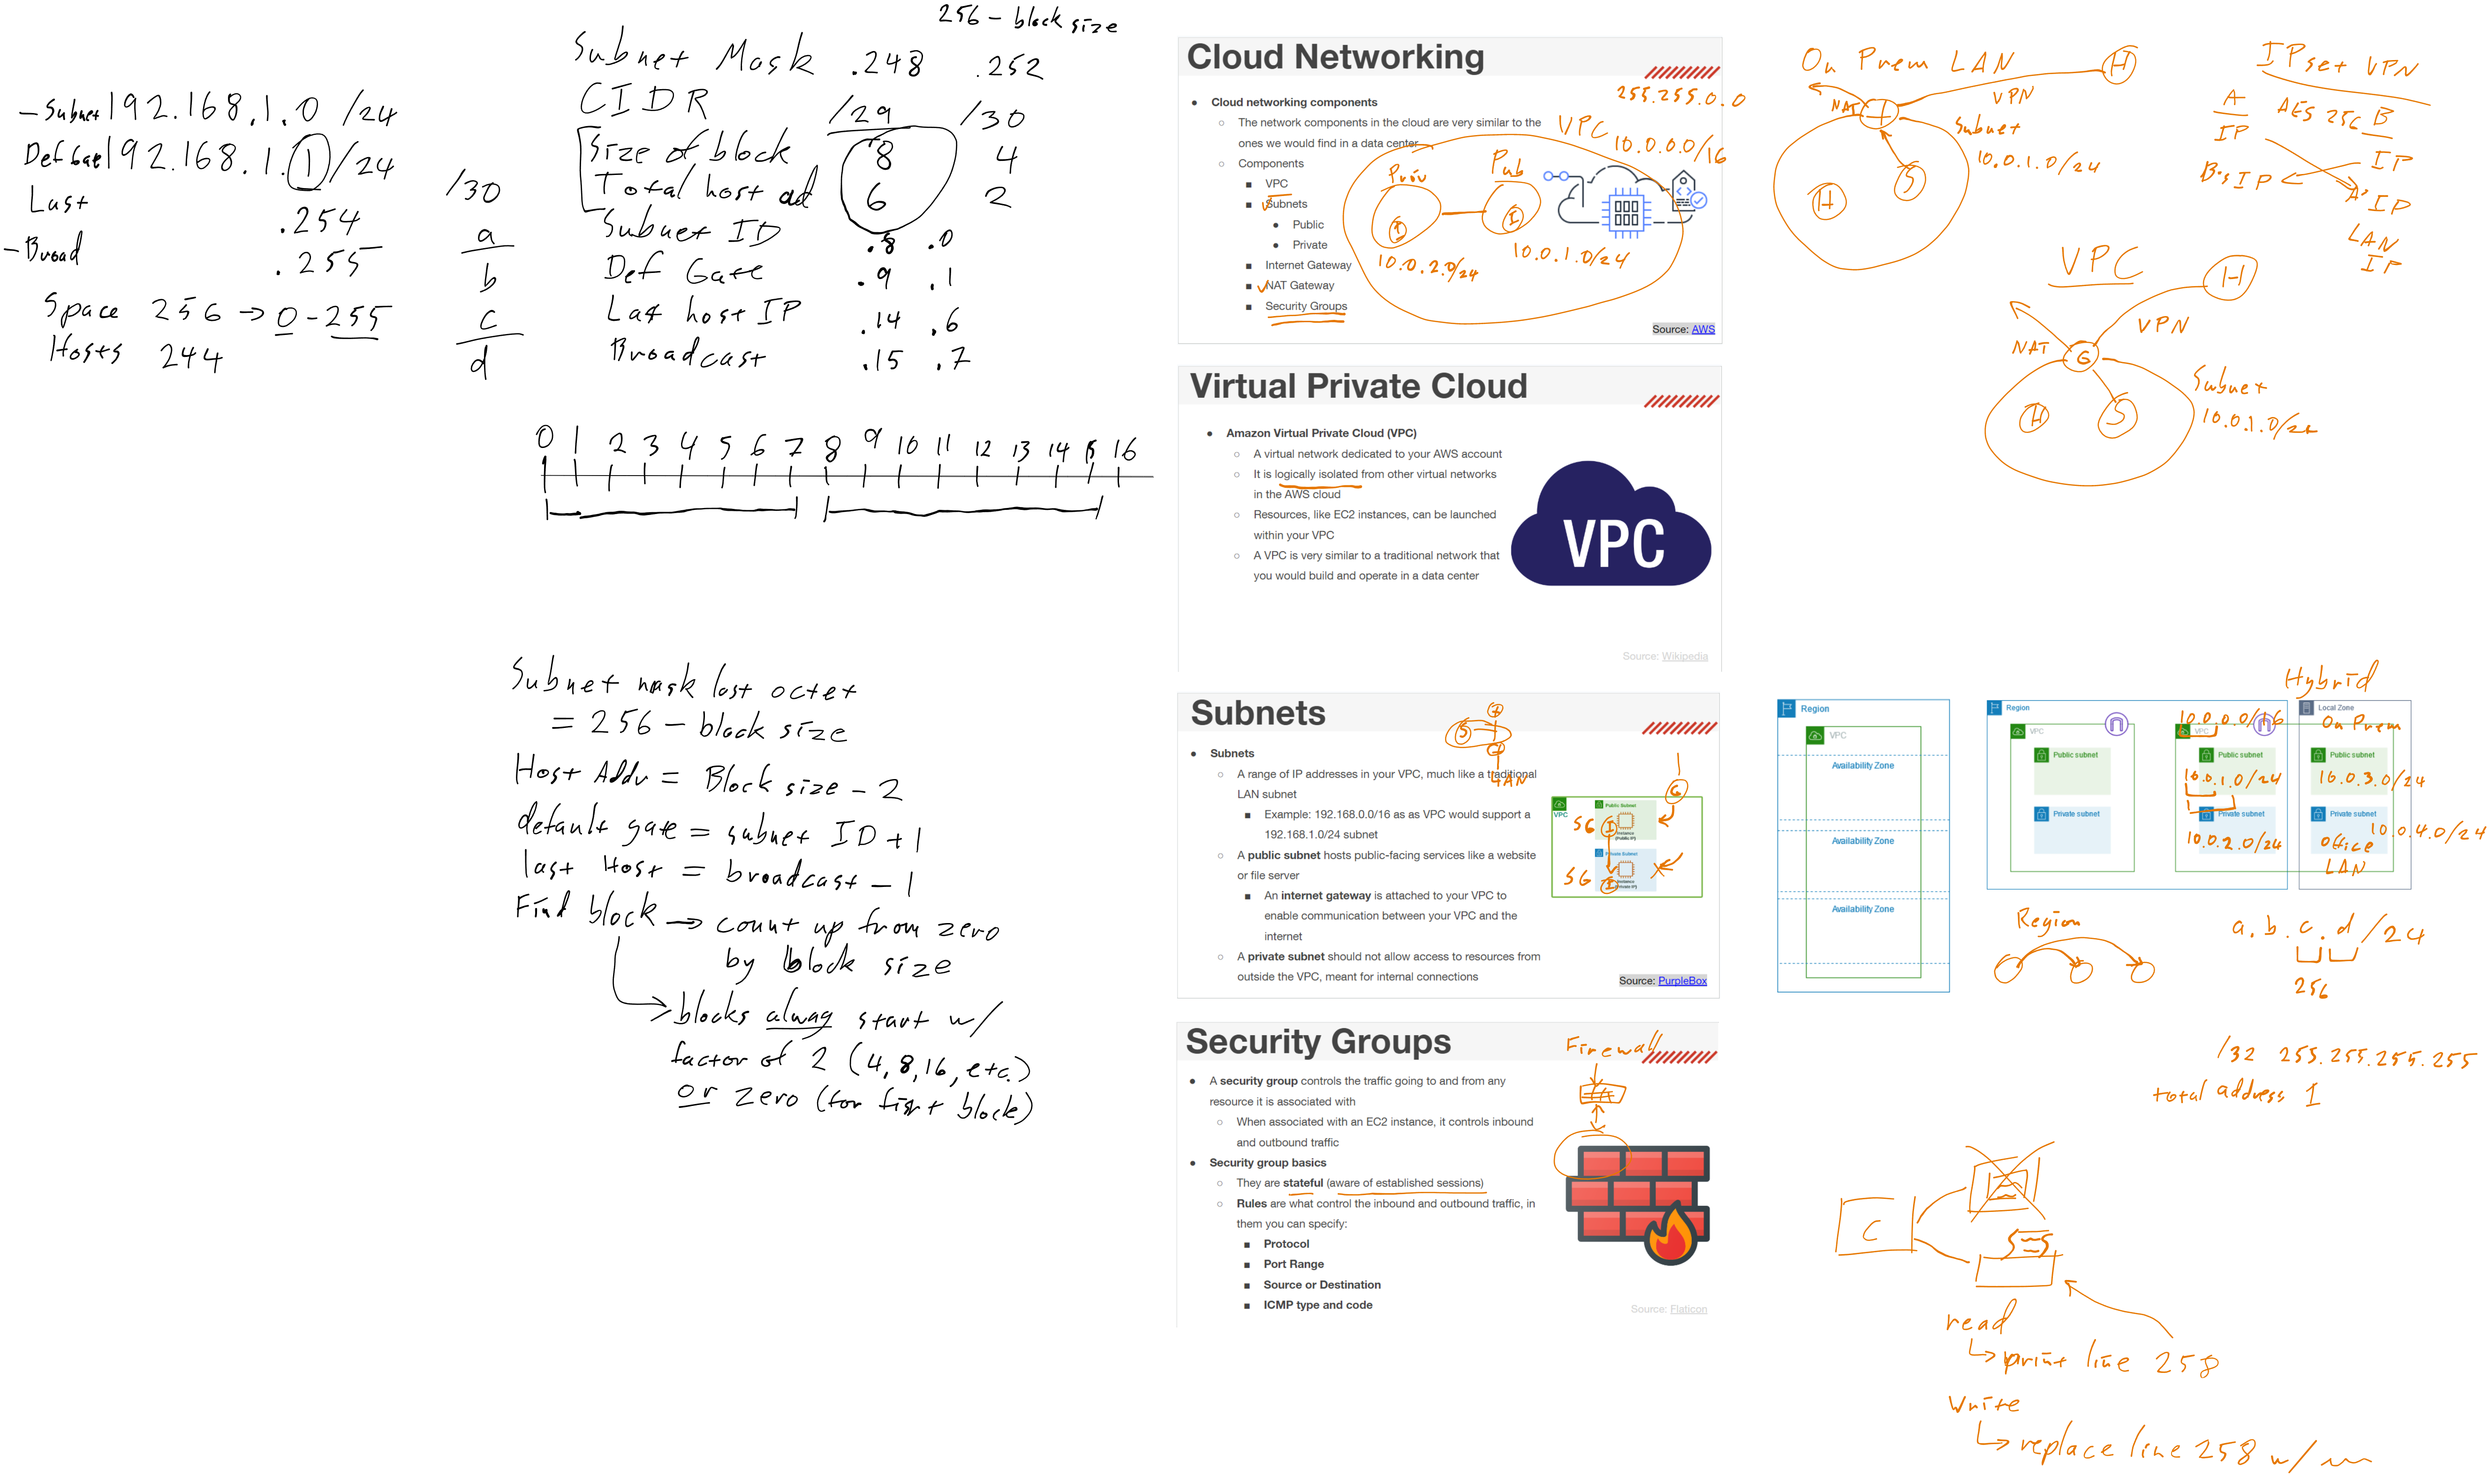 256 - block size
Subnet Mask .248 .252
CIDR /29 /30
Size of block 8 4
Total host ad 6 2
Subnet ID .8 .0
Def Gate .9 .1
Last host IP .14 .6
Broadcast .15 .7
- Subnet 192.168.1.0 /24
Def Gate 192.168.1.1 /24
Last .254
- Broad .255
Space 256 → 0 - 255
Hosts 244
/30
a
b
c
d
0 1 2 3 4 5 6 7 8 9 10 11 12 13 14 15 16
Subnet mask last octet
= 256 - block size
Host Addr = Block size - 2
default gate = subnet ID + 1
last Host = broadcast - 1
Find block → count up from zero
by block size
blocks alway start w/
factor of 2 (4, 8, 16, etc.)
or zero (for first block)
Cloud Networking
● Cloud networking components
○ The network components in the cloud are very similar to the
ones we would find in a data center
○ Components
■ VPC
■ Subnets
● Public
● Private
■ Internet Gateway
■ NAT Gateway
■ Security Groups
Source: AWS
255.255.0.0
VPC
10.0.0.0/16
Priv
Pub
I
I
10.0.2.0/24
10.0.1.0/24
Virtual Private Cloud
● Amazon Virtual Private Cloud (VPC)
○ A virtual network dedicated to your AWS account
○ It is logically isolated from other virtual networks
in the AWS cloud
○ Resources, like EC2 instances, can be launched
within your VPC
○ A VPC is very similar to a traditional network that
you would build and operate in a data center
VPC
Source: Wikipedia
Subnets
● Subnets
○ A range of IP addresses in your VPC, much like a traditional
LAN subnet
■ Example: 192.168.0.0/16 as as VPC would support a
192.168.1.0/24 subnet
○ A public subnet hosts public-facing services like a website
or file server
■ An internet gateway is attached to your VPC to
enable communication between your VPC and the
internet
○ A private subnet should not allow access to resources from
outside the VPC, meant for internal connections
Source: PurpleBox
S
LAN
G
VPC
Public Subnet
SG I
Instance
(Public IP)
Private Subnet
SG I
Instance
(Private IP)
Security Groups
● A security group controls the traffic going to and from any
resource it is associated with
○ When associated with an EC2 instance, it controls inbound
and outbound traffic
● Security group basics
○ They are stateful (aware of established sessions)
○ Rules are what control the inbound and outbound traffic, in
them you can specify:
■ Protocol
■ Port Range
■ Source or Destination
■ ICMP type and code
Source: Flaticon
Firewall
On Prem LAN
H
NAT
VPN
Subnet
10.0.1.0/24
H
S
IPset VPN
A AES 256 B
IP
IP
B's IP
A's IP
LAN
IP
VPC
H
VPN
NAT
G
Subnet
10.0.1.0/24
H
S
Region
VPC
Availability Zone
Availability Zone
Availability Zone
Hybrid
Region
VPC
Public subnet
Private subnet
10.0.0.0/16
VPC
Public subnet
10.0.1.0/24
Private subnet
10.0.2.0/24
Local Zone
On Prem
Public subnet
10.0.3.0/24
Private subnet
10.0.4.0/24
Office
LAN
Region
a.b.c.d/24
256
/32 255.255.255.255
total address 1
C
read
print line 258
Write
replace line 258 w/